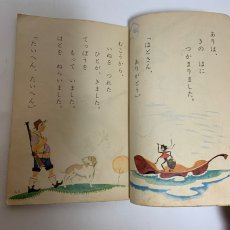 ありは、
きの はに
つかまりました。
「はとさん、
ありがとう」
むこうから、
いぬを つれた
ひとが、きました。
てっぽうを
もって いました。
はとを ねらいました。
「たいへん、たいへん」